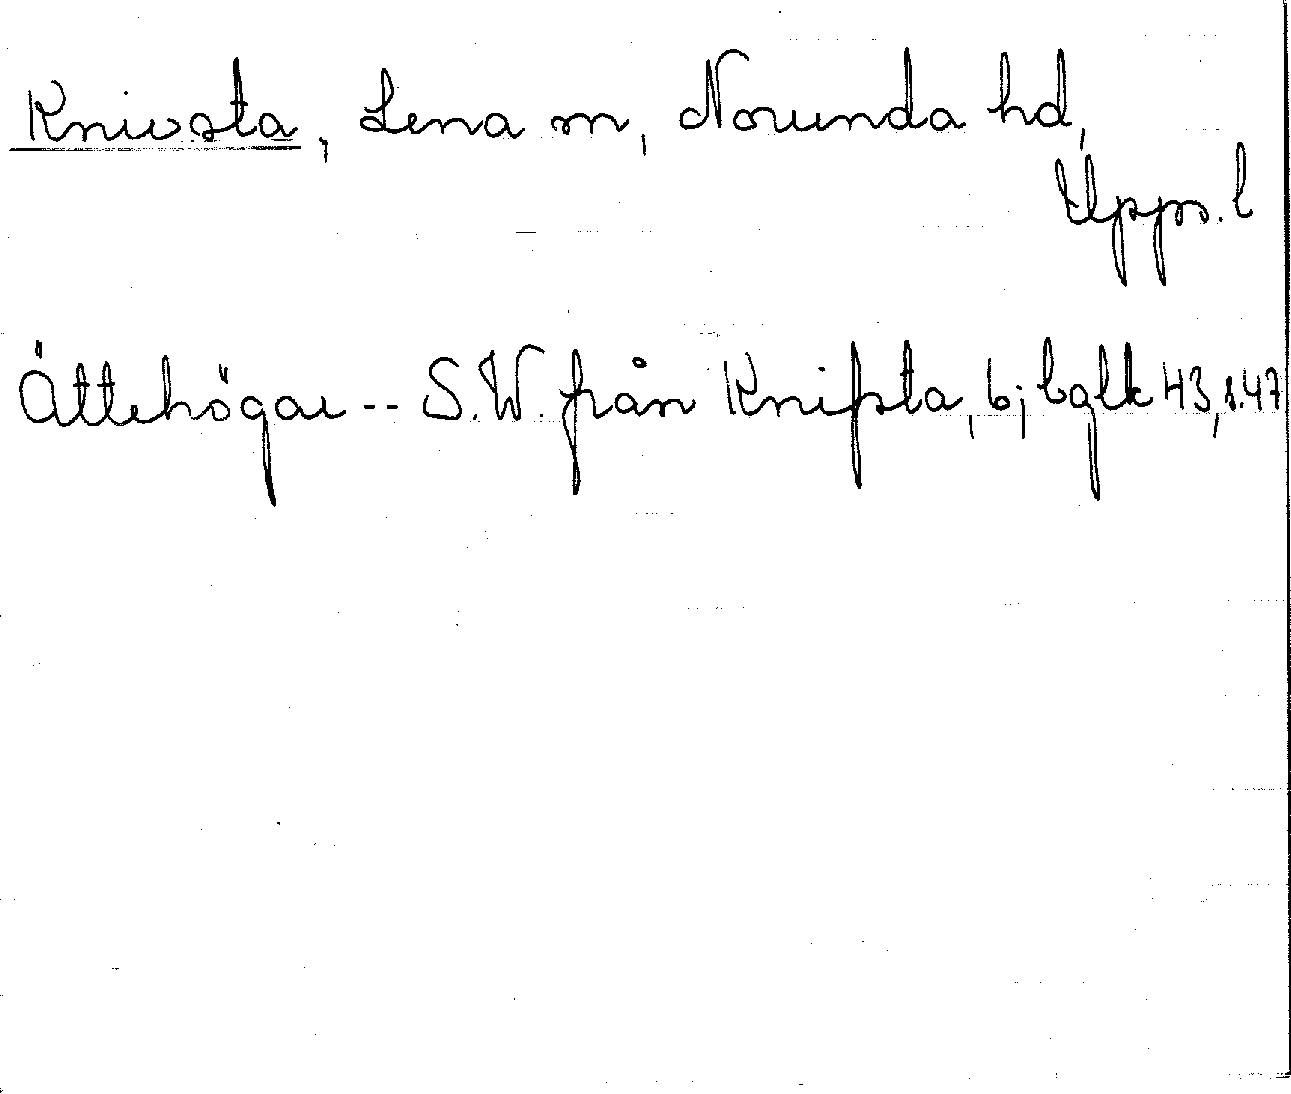 Knivsta, Lena sn, Norunda hd,
Upps. l
Ättehögar -- S.W. från Knipsta, by; bglk 43, s. 47